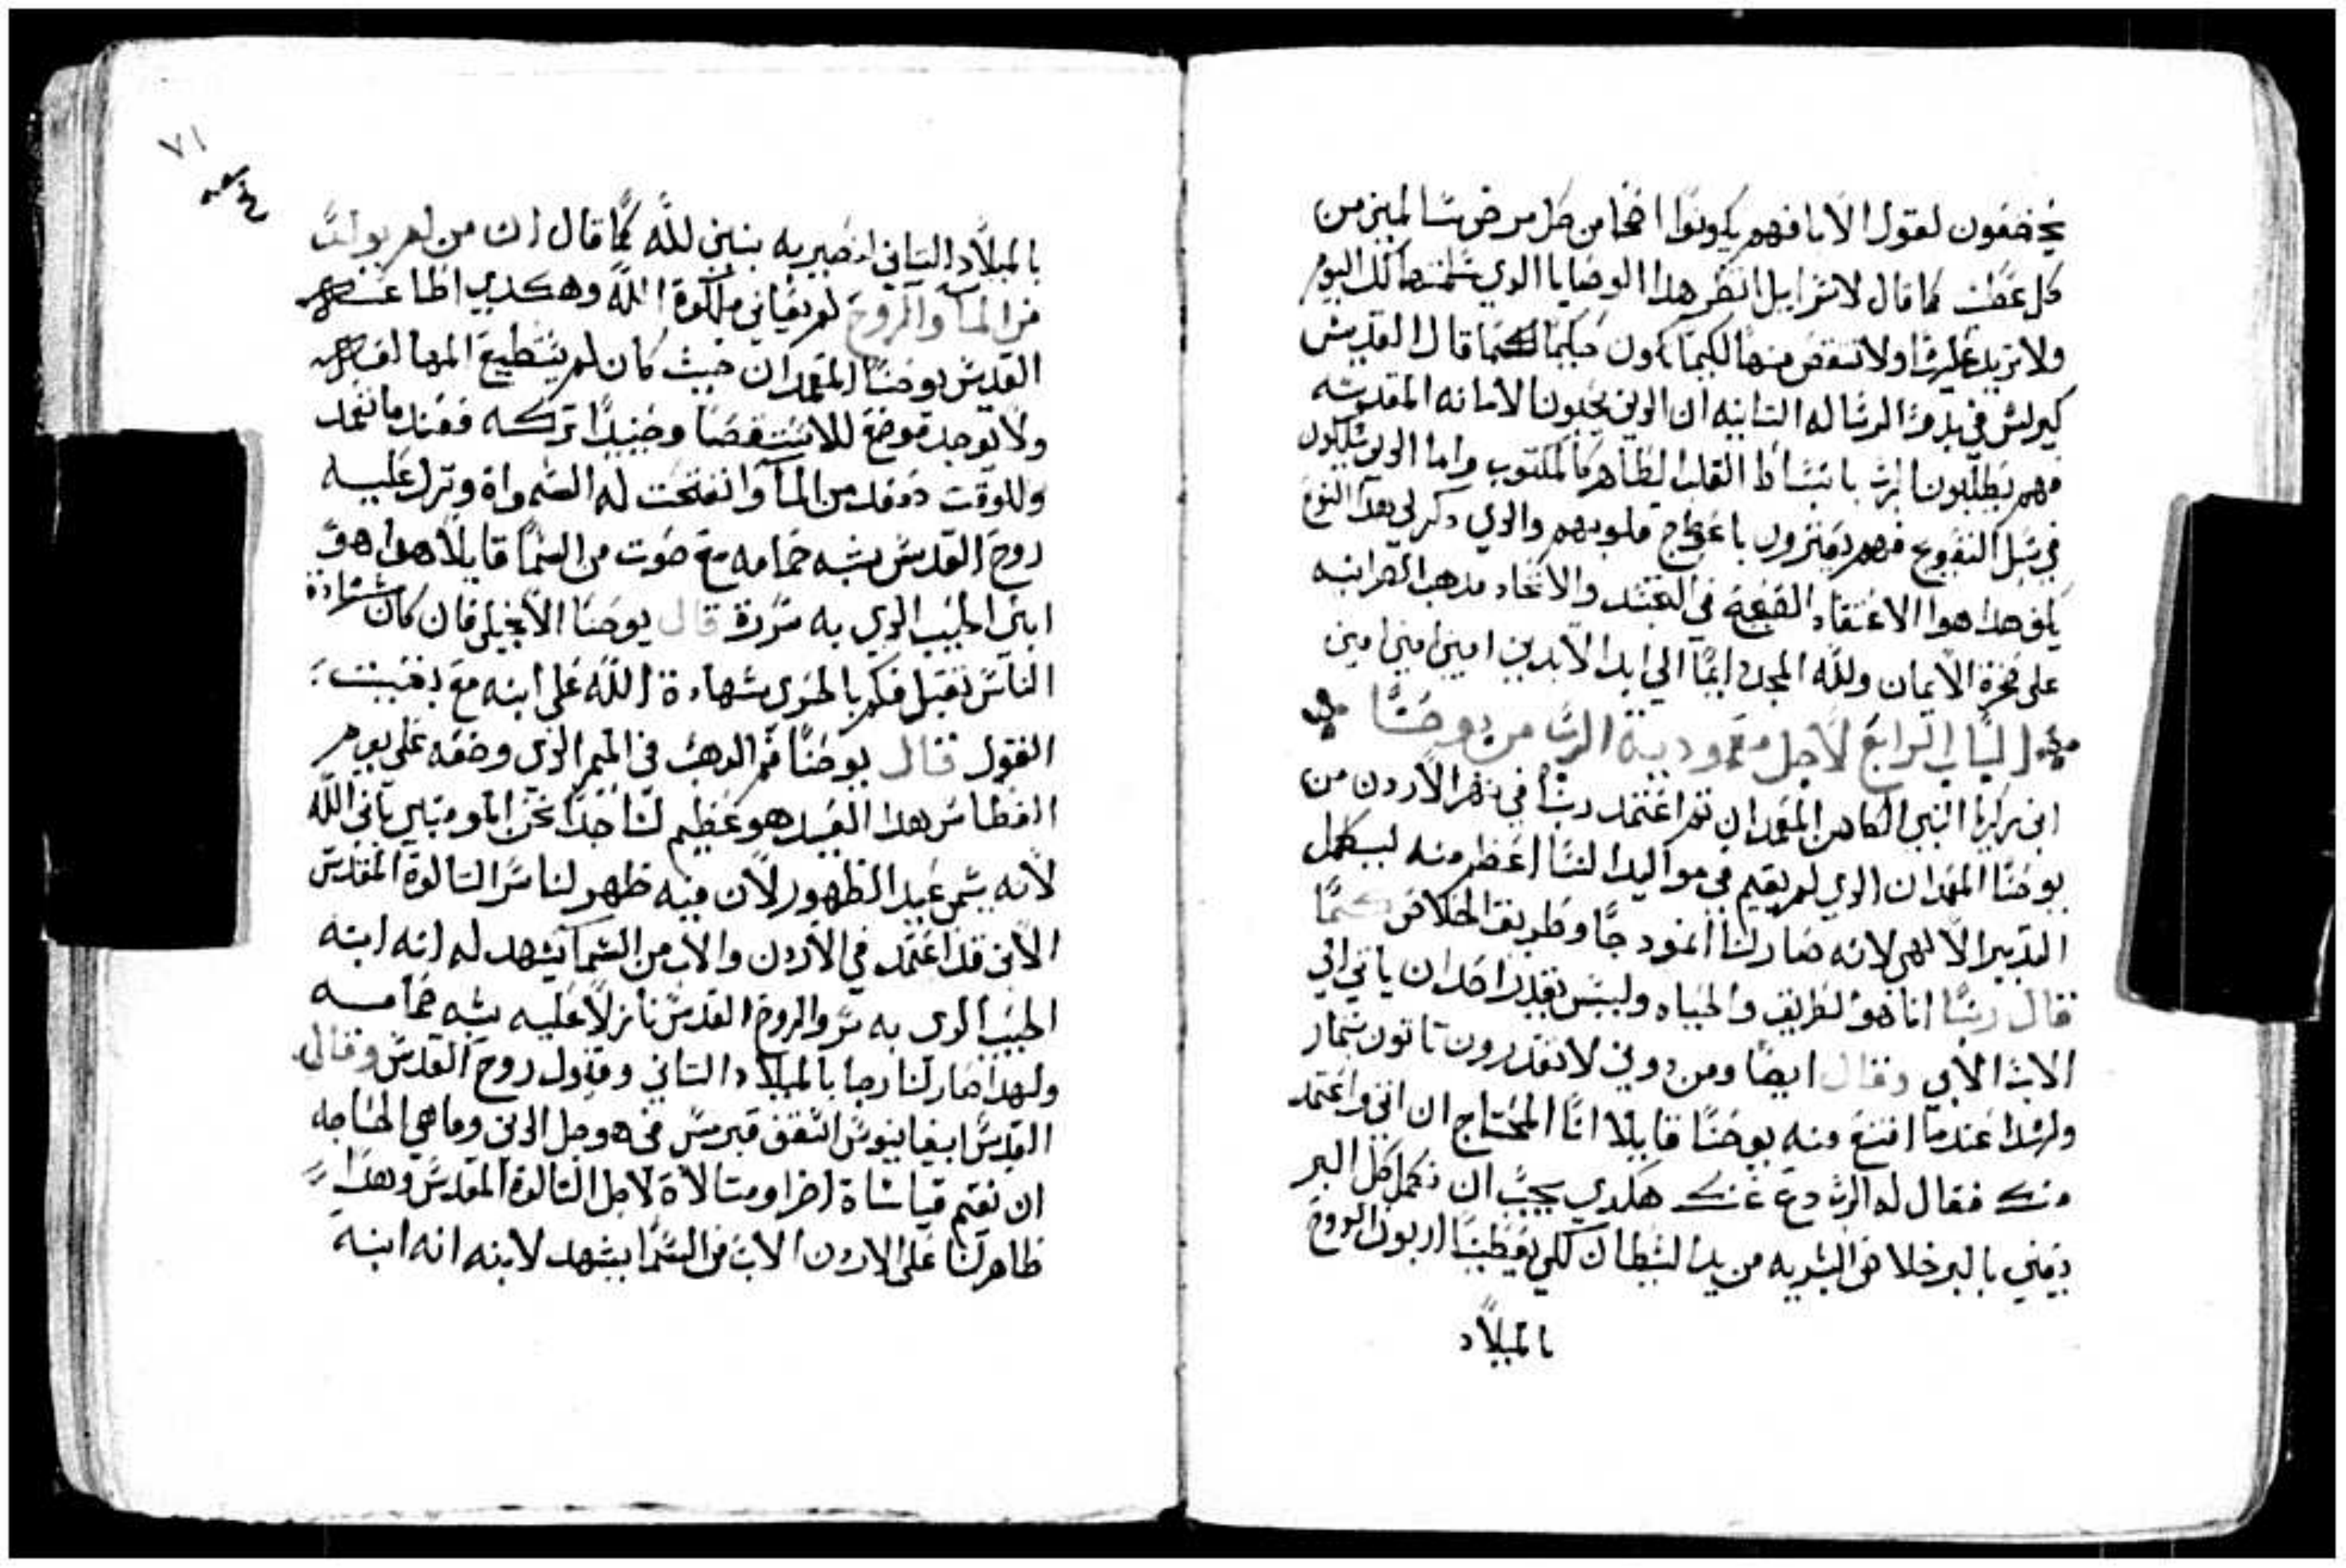 يخضعون لقول الابا فهم يكونوا اصحا من كل مرض سالمين من
كل عطب كما قال لاسرايل انظر هدا الوصايا الدي سلمتها لك اليوم
ولا تزيد عليها ولا تنقص منها لكيما تكون حكيما كما قال القديس
كيرلس في بدو الرساله التانيه ان الدين يحبون الامانه المقدسه
فهم يطلبون الرب بانبساط القلب الطاهر كالمكتوب واما الدين يسلكون
في سبل التعويج فهم يعترون باعوجاج قلوبهم والدي دكر لي بهدا النوع
هدا هوا الاعتقاد في التجسد والاتحاد مدهب النصرانيه
على صخرة الايمان ولله المجد دايما الي ابد الابدين امين امين امين
الباب الرابع لاجل معمودية الرب من يوحنا
ابن زكريا النبي الكاهن المعمدان تم اعتمد ربنا في نهر الاردن من
يوحنا المعمدان الدي لم يقيم في مواليد النسا اعظم منه ليكمل
التدبير الالهي لانه صار لنا انمودجا وطريق الخلاص كما
قال ربنا انا هو الطريق والحياه وليس يقدر احد ان ياتي الي
الاب الا بي وقال ايضا ومن دوني لا تقدرون تاتون بثمار
ولهدا عندما امتنع منه يوحنا قايلا انا المحتاج ان اتي واعتمد
منك فقال له الرب دع عنك هكدي يجب ان نكمل كل البر
يعني بالبر خلاص البشريه من يد الشيطان لكي يعطينا اربون الروح
بالميلاد
٧١
بالميلاد التاني لنصير به بنين لله كما قال ان من لم يولد
من الما والروح لم يعاين ملكوة الله وهكدي اطاعه
القديس يوحنا المعمدان حيث كان لم يستطيع المخالفه
ولا يوجد موضع للاستقصا وحينيدا تركه فعند ما تعمد
وللوقت صعد من الما وانفتحت له السمواة ونزل عليه
روح القدس بشبه حمامه مع صوت من السما قايلا هدا هو
ابني الحبيب الدي به سررة قال يوحنا الانجيلي فان كان شهادة
الناس تقبل فكم بالحري شهادة الله على ابنه مع
القول قال يوحنا فم الدهب في الميمر الدي وضعه على يوم
الغطاس بهدا العيد هو عظيم لنا جدا نحن المومنين بابن الله
لانه يسمى عيد الظهور لان فيه ظهر لنا سر التالوة المقدس
الابن قد اعتمد في الاردن والاب من السما يشهد له انه ابنه
الحبيب الدي به سر والروح القدس نازلا عليه بشبه حمامه
ولهدا صار لنا رجا بالميلاد التاني وقبول روح القدس وقال
القديس ابيفانيوس اسقف قبرس في هوجل الدين وما هي الحاجه
ان نقيم قياساة اخر ومتالاة لاجل التالوة المقدس وهدا
ظاهر لنا على الاردن الاب من السما يشهد لابنه انه ابنه